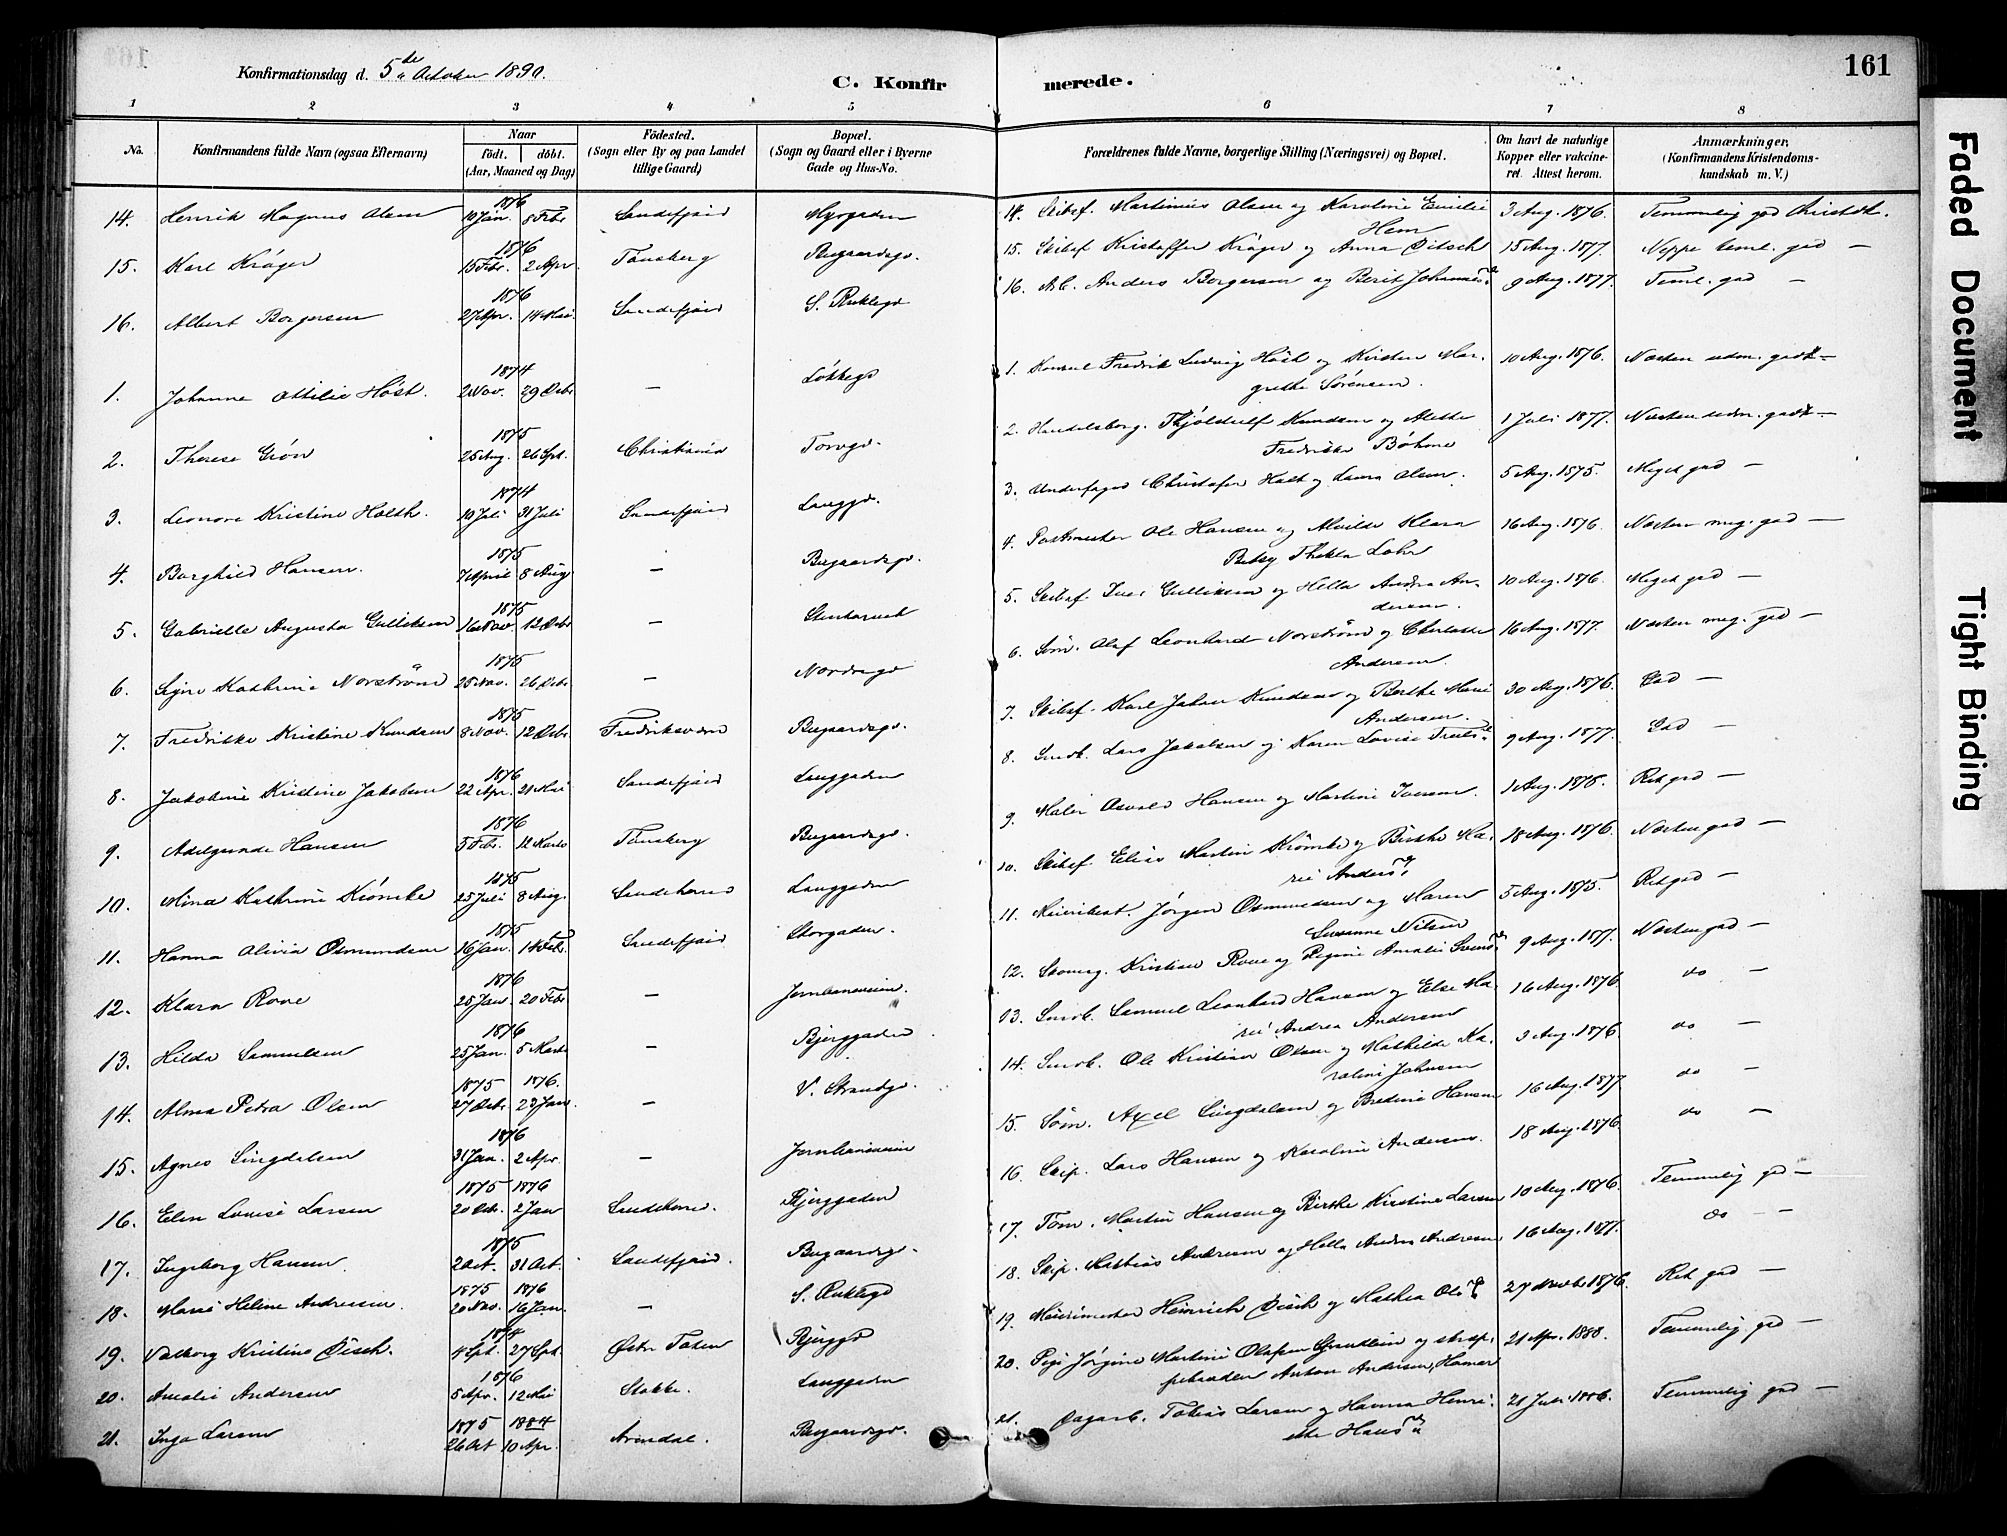 Konfirmationsdag d. 5te October 1890.
C. Konfirmerede.
161
1 2 3 4 5 6 7 8
No. Konfirmandens fulde Navn (ogsaa Efternavn) Naar födt. döbt. (Aar, Maaned og Dag) Födested. (Sogn eller By og paa Landet tillige Gaard) Bopæl. (Sogn og Gaard eller i Byerne Gade og Hus-No. Forældrenes fulde Navne, borgerlige Stilling (Næringsvei) og Bopæl. Om havt de naturlige Kopper eller vakcineret. Attest herom. Anmærkninger, (Konfirmandens Kristendomskundskab m. V.)
14. Henrik Magnus Olsen 1876 19 Jan. 8 Febr Sandefjord Myrgaden 14. Skibsf. Martinius Olsen og Karoline Emilie Hem 3 Aug. 1876. Temmelig god Christdk.
15. Karl Kröger 1876 15 Febr. 2 Apr Tönsberg Bugaardsgd. 15. Skibsf Kristoffer Kröger og Anna Ditsch 15 Aug. 1877. Neppe teml. god —
16. Albert Borgersen 1876 27 Apr. 14 Mai Sandefjord S. Ruklegd 16. Arb. Anders Borgersen og Berit Johannesd. 9 Aug. 1877. Teml. god —
1. Johanne Ottilie Höst. 1874 2 Nov. 29 Debr — Lökkegd 1. Konsul Fredrik Ludvig Höst og Kirsten Margrethe Sörensen. 10 Aug. 1876. Næsten udm. godt —
2. Therese Grön 1875 25 Aug. 26 Spt. Christiania Torvgd. 2. Handelsborg. Thjöldulf Knudsen og Alette Fredrikke Böhme 1 Juli 1877. Næsten udm. godt —
3. Leonore Kristine Holth. 1874 19 Juli 31 Juli Sandefjord Langgd. 3. Underfoged Christofer Holt og Laura Olsen. 5 Aug. 1875. Meget god —
4. Borghild Hansen. 1875 7 April 8 Aug — Bugaardsgd. 4. Postmester Ole Hansen og Alvilde Klara Betsy Thekla Lohr 16 Aug. 1876. Næsten meg. god —
5. Gabrielle Augusta Gulliksen 1875 16 Nov 12 Debr — 5. Skibsf. Iver Gulliksen og Hella Andrea Andersen. 10 Aug. 1876. Meget god —
6. Signe Kathrine Norström 1875 25 Nov. 26 Debr — Nordregd 6. Söm. Olaf Leonhard Norström og Charlotte Andersen. 16 Aug. 1877. Næsten meg. god —
7. Fredrikke Kristine Knudsen 1875 8 Nov. 12 Debr Fredriksværn Bugaardsgd. 7. Skibsf. Karl Johan Knudsen og Berthe Marie Andersen. 30 Aug. 1876. God —
8. Jakobine Kristine Jakobsen 1876 22 Apr. 21 Mai Sandefjord Langgaden 8. Snedk. Lars Jakobsen og Karen Lovise Truls 9 Aug. 1877. God —
9. Adelgunde Hansen 1876 5 Febr. 12 Marts Tönsberg Bugaardsgd. 9. Maler Osvald Hansen og Martine Iversen. 1 Aug. 1878. Ret god —
10. Mina Kathrine Krömke 1875 25 Juli 8 Aug. Sandeherred Langgaden 10. Skibsf. Elias Martin Krömke og Birthe Marie Andersd. 18 Aug. 1876. Næsten god —
11. Hanna Olivia Osmundsen 1875 16 Jan. 14 Febr. Sandefjord Storgaden. 11. Meieribest. Jörgen Osmundsen og Maren Susanne Nilsen 5 Aug. 1875. Ret god —
12. Klara Rove 1876 25 Jan. 20 Febr — Jernbaneveien. 12. Skomag. Kristian Rove og Regine Amalie Svends. 9 Aug. 1877. Næsten god —
13. Hilda Samuelsen 1876 25 Jan. 5 Marts — Bjerggaden 13. Snedk. Samuel Leonhard Hansen og Else Marie Andrea Andersen 16 Aug. 1876. do —
14. Alma Petra Olsen 1875 27 Debr 1876. 23 Jan. — V. Strandgd. 14. Snedk. Ole Kristian Olsen og Mathilde Karoline Johnsen 3 Aug. 1876. do —
15. Agnes Lingdalsen 1876 31 Jan. 2 Apr. — Jernbaneveien 15. Söm. Axel Lingdalsen og Bredine Hansen 16 Aug. 1877 do —
16. Elen Lovise Larsen 1875 20 Debr. 1876 2 Jan Sandeherred. Bjerggaden 16. Skip. Lars Hansen og Karoline Andersen. 18 Aug. 1876. do —
17. Ingeborg Hansen 1875 2 Oct. 31 Oct. Sandefjord. Bugaardsgd. 17. Töm. Martin Hansen og Birthe Kirstine Larsen 10 Aug. 1876. Temmelig god —
18. Marie Heline Andresen. 1875 20 Nov. 1876 16 Jan. — S. Ruklegd 18. Skip. Mathias Andresen og Hella Andrea Andresen 16 Aug. 1877. do —
19. Valborg Kristine Disch. 1874 4 Spt. 27 Spt. Östre Toten Bjerggd 19. Meierimester Heinrich Disch og Mathea Olsd. 27 1876. Ret god —
20. Amalie Andersen 1876 5 Apr. 12 Mai Stokke. Langgaden 20. Pige Jörgine Martine Olafsen og Anton Andersen, Hamar 21 Apr. 1888. Temmelig god —
21. Inga Larsen 1875 26 Oct 1884 10 Apr. Arendal. Bugaardsgd. 21. Dagarb. Tobias Larsen og Hanna Henriette Hansd. 21 Juli 1886. Temmelig god —
Faded Document
Tight Binding